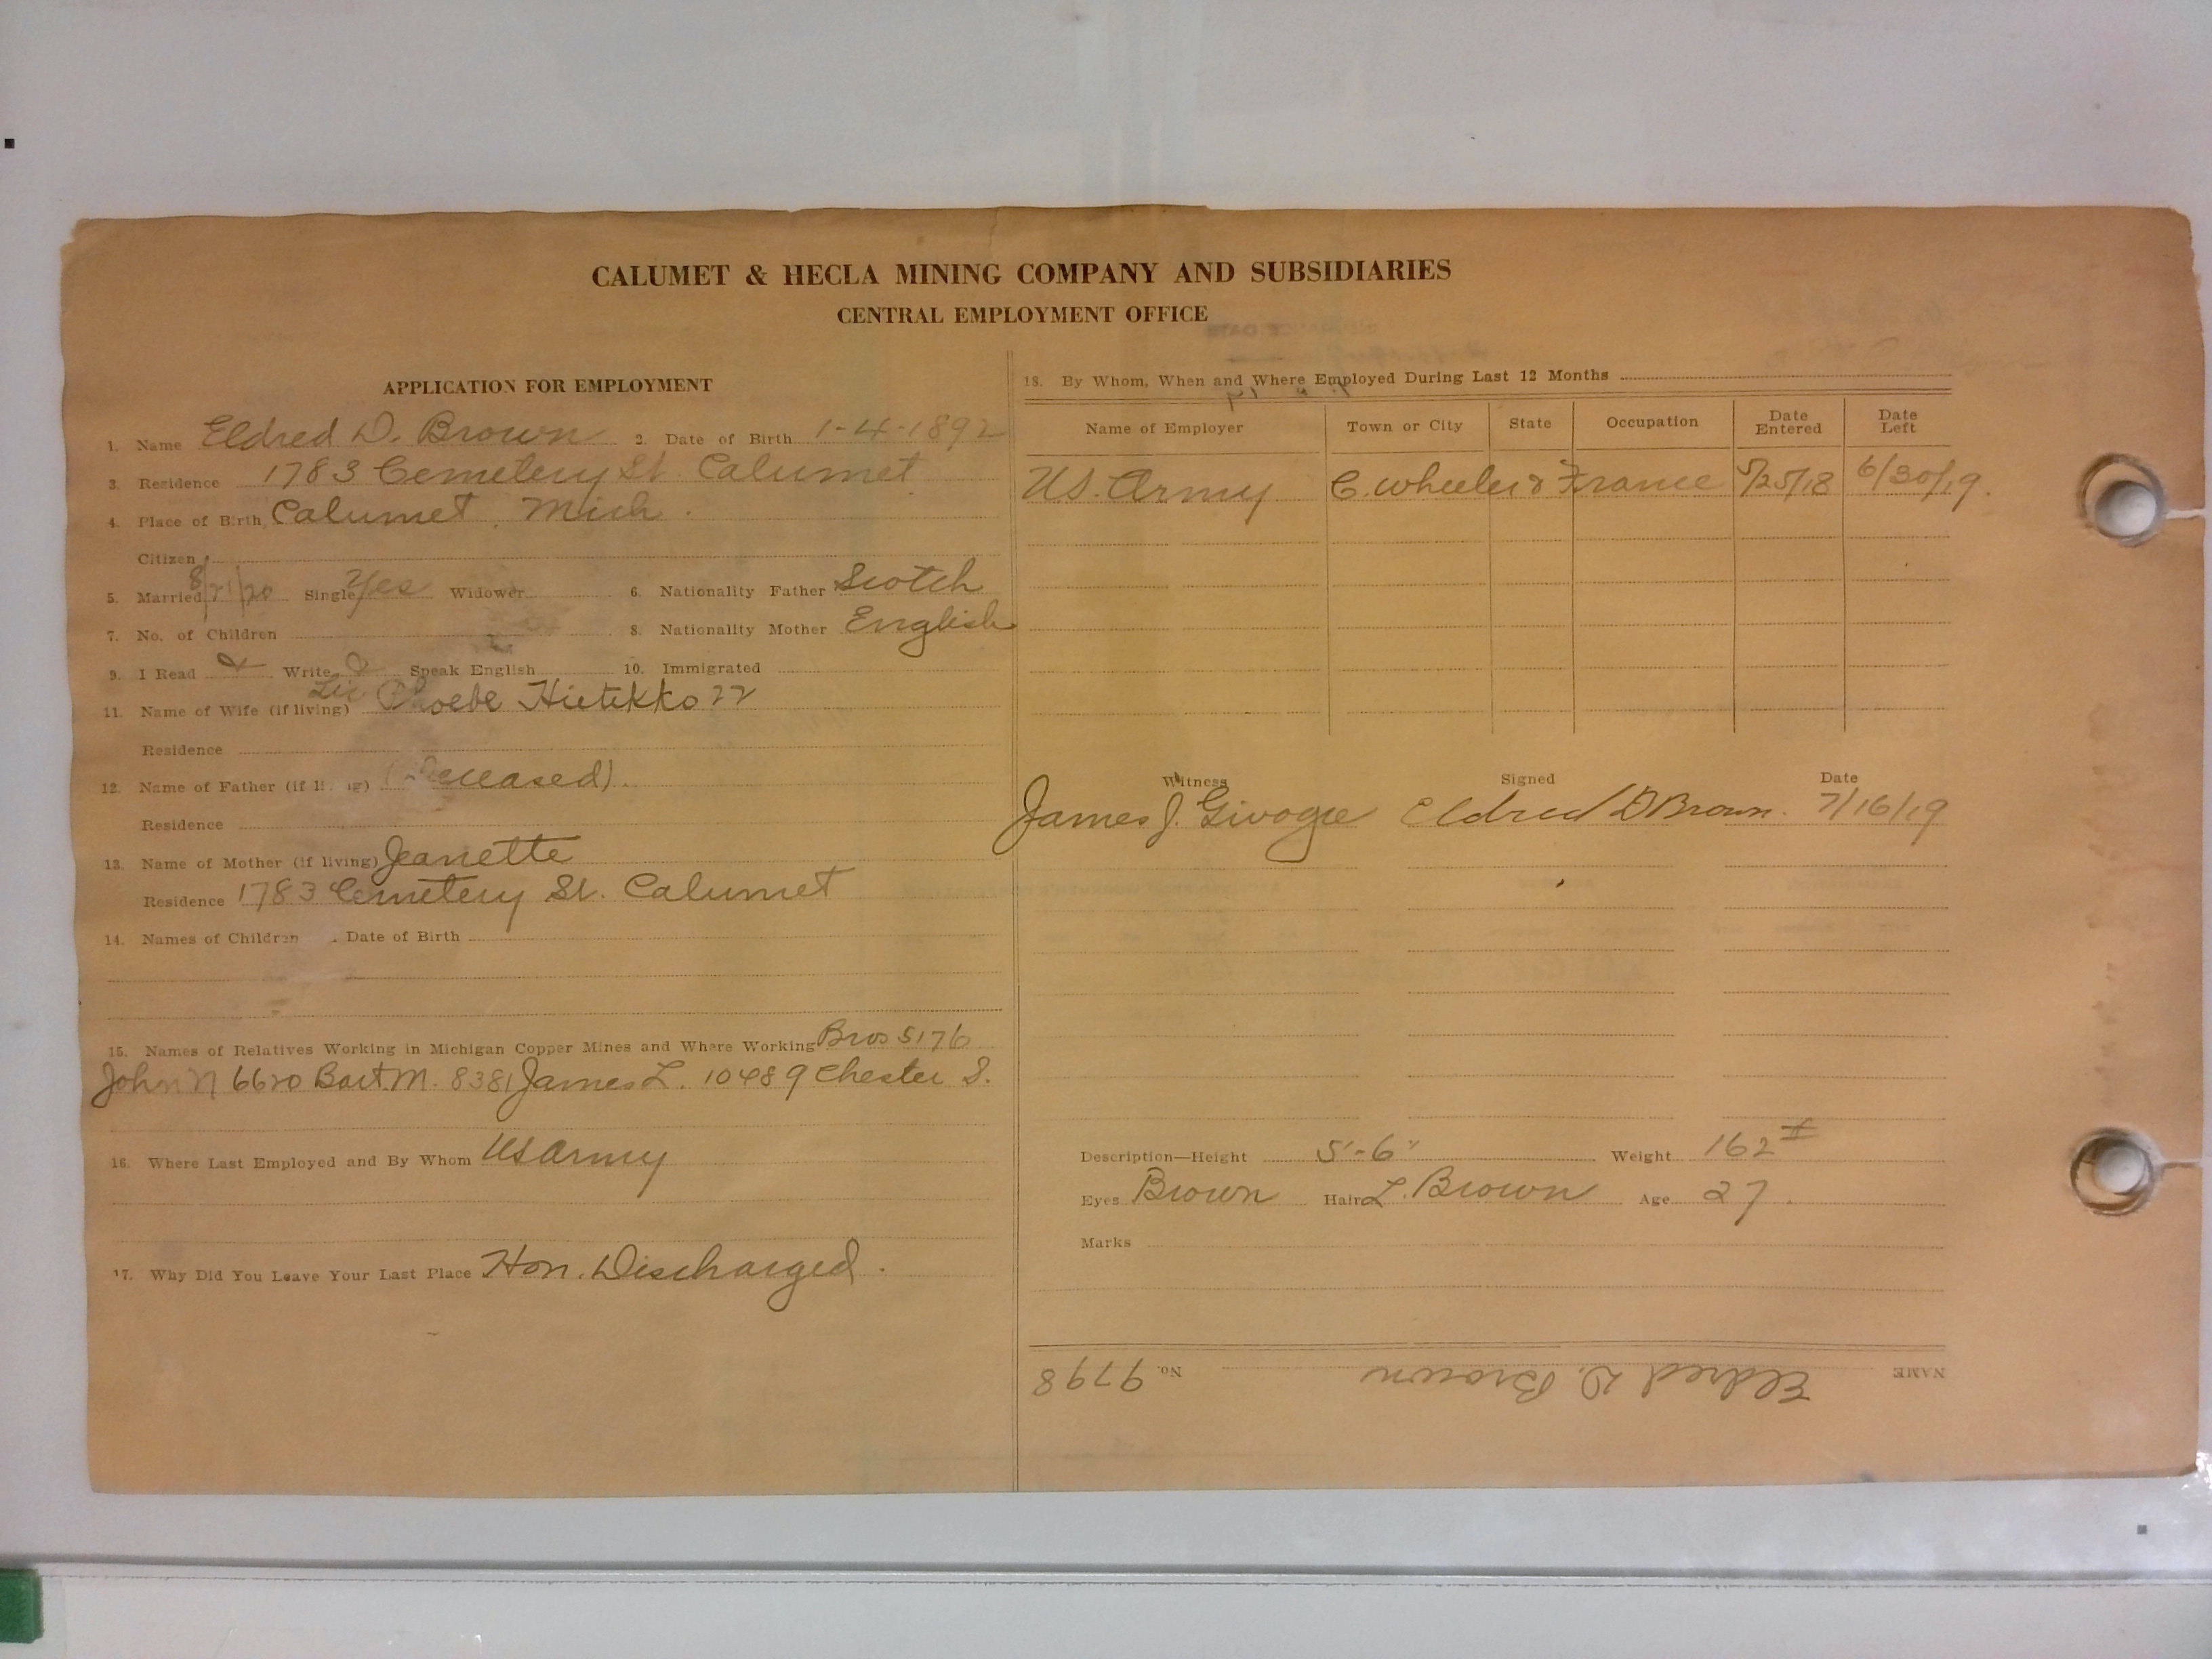 CALUMET & HECLA MINING COMPANY AND SUBSIDIARIES
CENTRAL EMPLOYMENT OFFICE
APPLICATION FOR EMPLOYMENT
1. Name Eldred D. Brown 2. Date of Birth 1-4-1892
3. Residence 1783 Cemetery St. Calumet
4. Place of Birth Calumet, Mich.
Citizen
5. Married 8/21/20 Single Yes Widower
6. Nationality Father Scotch
7. No. of Children
8. Nationality Mother English
9. I Read & Write & Speak English 10. Immigrated
11. Name of Wife (if living) Lic Phoebe Hietikko 22
Residence
12. Name of Father (if living) (Deceased).
Residence
13. Name of Mother (if living) Jeanette
Residence 1783 Cemetery St. Calumet
14. Names of Children Date of Birth
15. Names of Relatives Working in Michigan Copper Mines and Where Working Bros 5176
John N 6620 Bart. M. 8381 James L. 10489 Chester S.
16. Where Last Employed and By Whom US Army
17. Why Did You Leave Your Last Place Hon. Discharged.
18. By Whom, When and Where Employed During Last 12 Months
Name of Employer Town or City State Occupation Date Entered Date Left
US. Army C. Wheeler & France 5/25/18 6/30/19.
Witness Signed Date
James J. Givogre Eldred D Brown. 7/16/19
Description—Height 5'-6" Weight 162#
Eyes Brown Hair L. Brown Age 27.
Marks
NAME Eldred D. Brown No. 9798